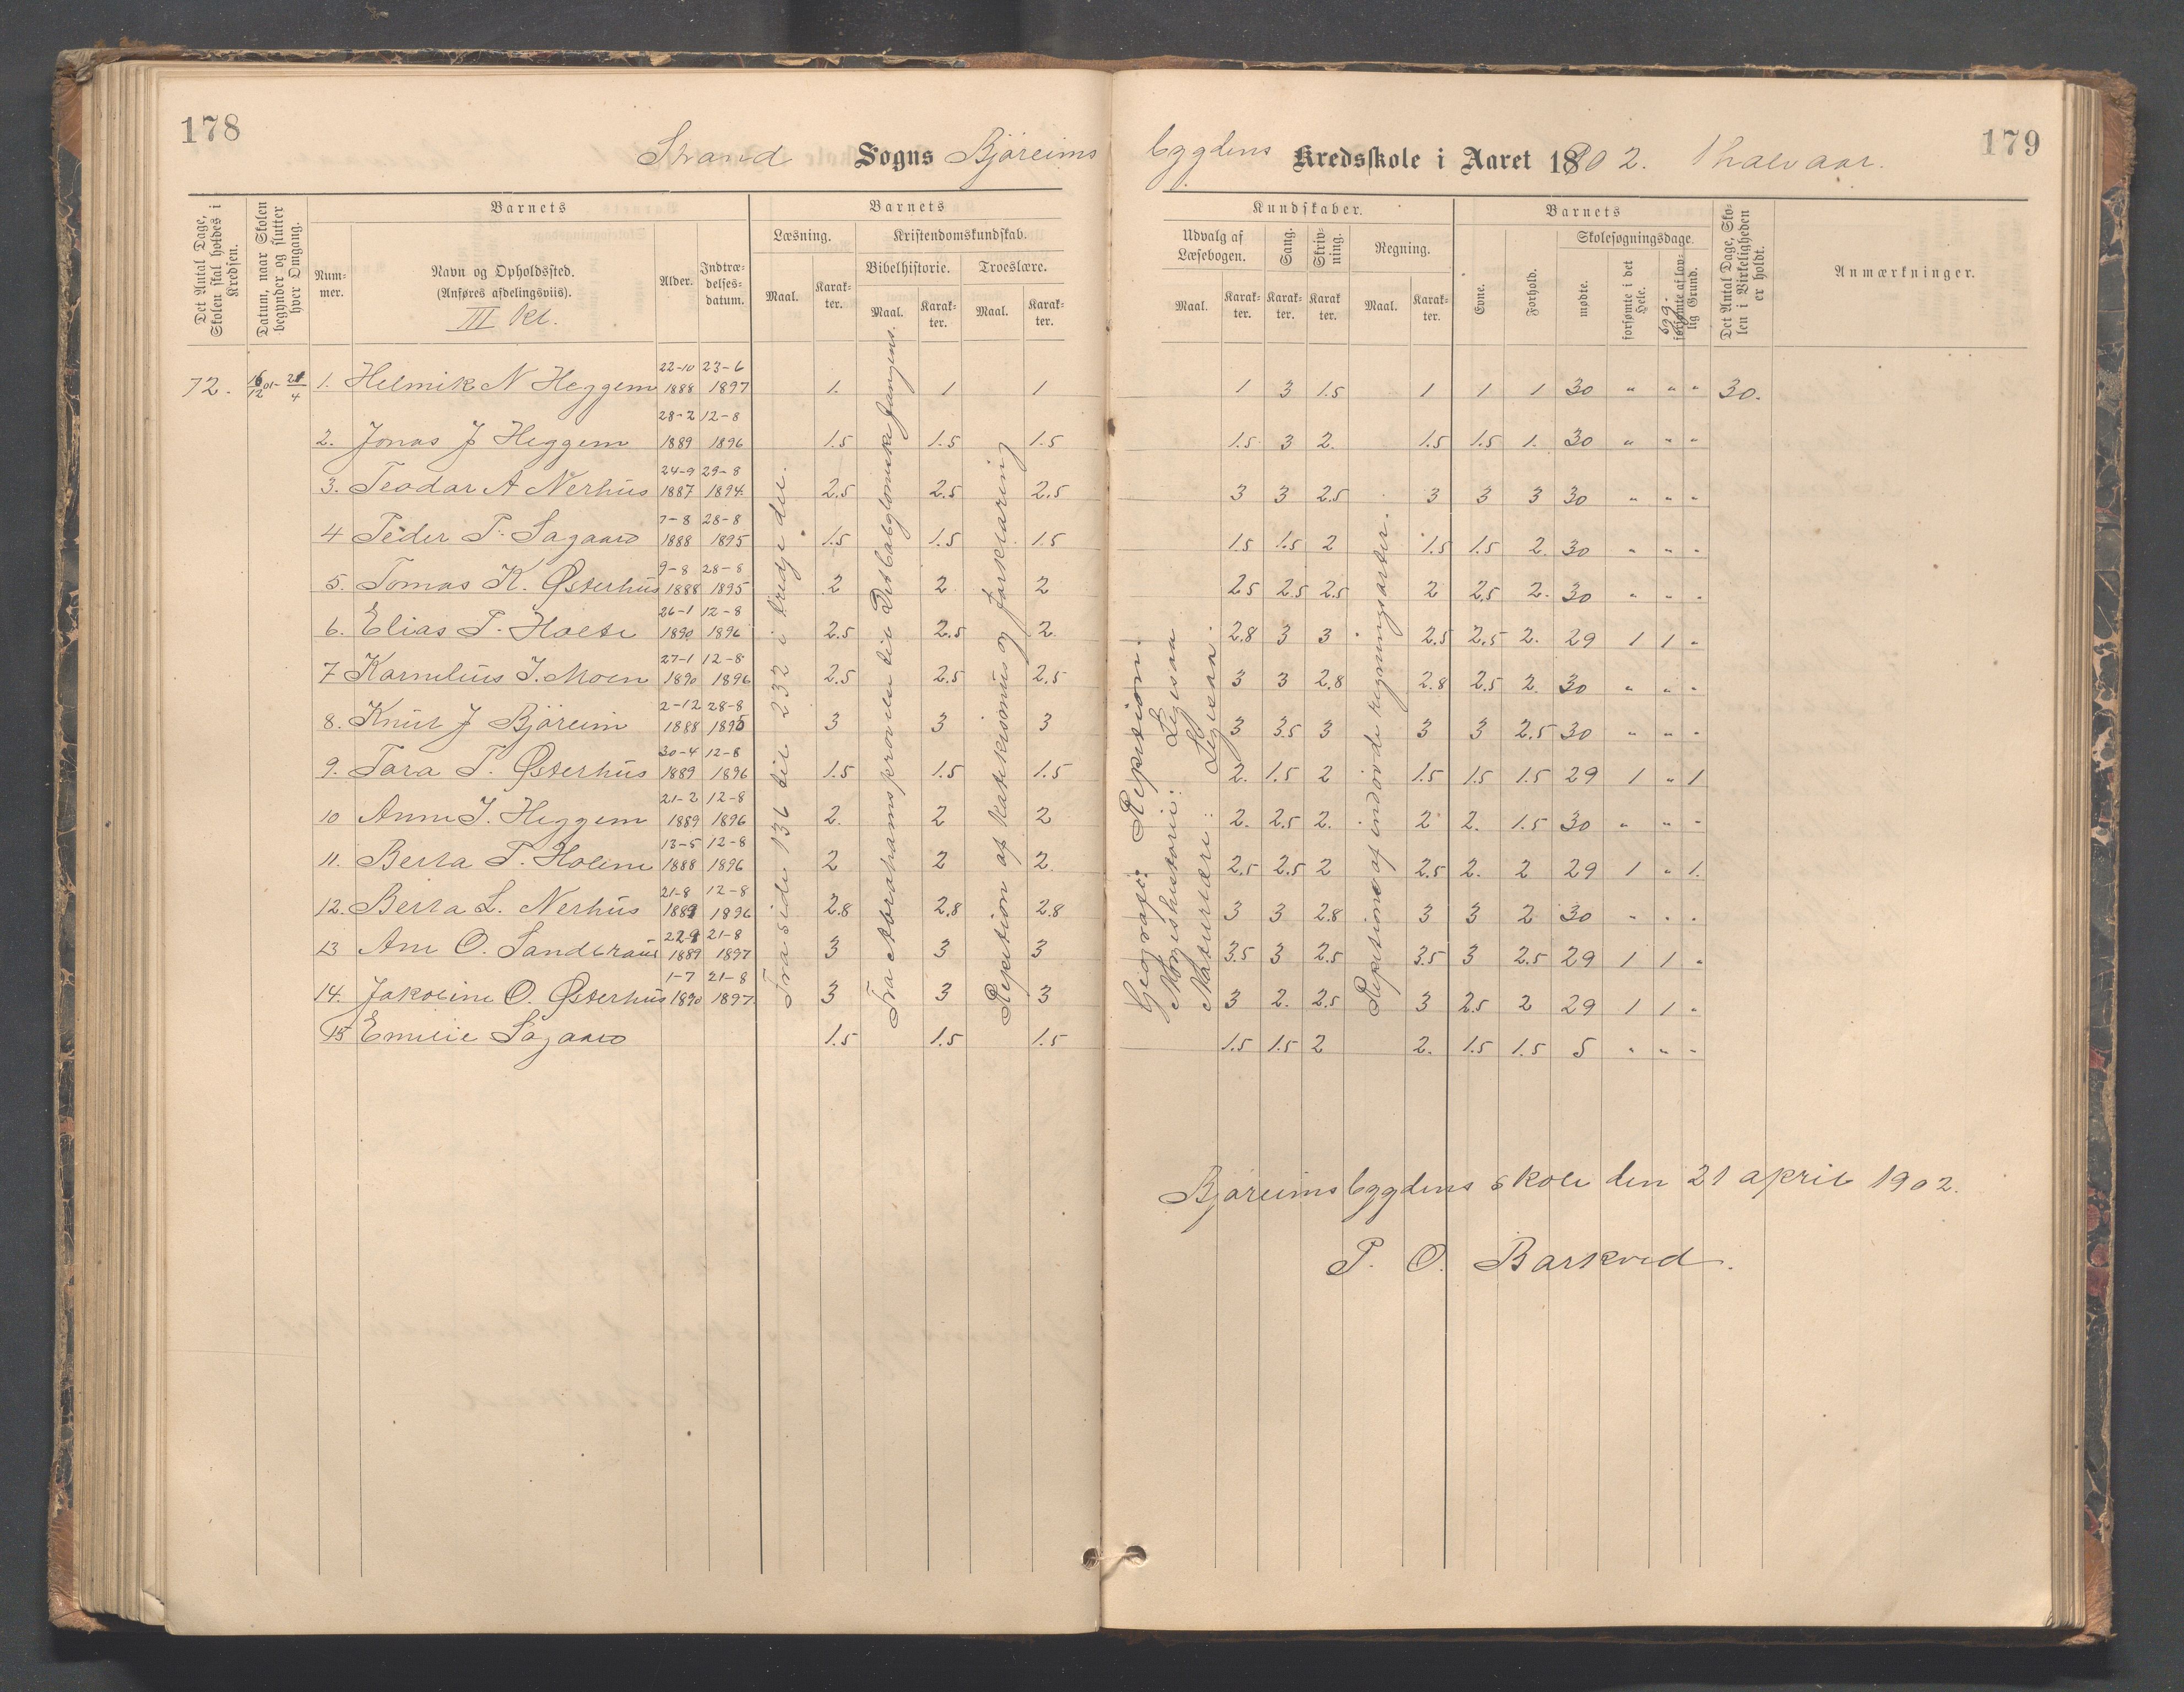 178
Strand Sogns Bjøreims
Det Antal Dage, Skolen skal holdes i Kredsen.
Datum, naar Skolen begynder og slutter hver Omgang.
Barnets
Num-
mer.
Navn og Opholdssted.
(Anføres afdelingsviis).
III kl.
Alder.
Indtræ-
delses-
datum.
Barnets
Læsning.
Kristendomskundskab.
Bibelhistorie.
Troeslære.
Maal.
Karak-
ter.
Maal.
Karak-
ter.
Maal.
Karak-
ter.
72. 16/12 01- 21/4 1. Helmik N Heggem 22-10 1888 23-6 1897 1. 1 1
2. Jonas J Heggem 28-2 1889 12-8 1896 1.5 1.5 1.5
3. Teodor A Nerhus 24-9 1887 29-8 1894 2.5 2.5 2.5
4 Peder T. Sagaard 7-8 1888 28-8 1895 1.5 1.5 1.5
5. Tomas K. Østerhus 9-8 1888 28-8 1895 2 2 2
6. Elias T. Holte 26-1 1890 12-8 1896 2.5 2.5 2.
7 Kornelius I. Moen 27-1 1890 12-8 1896 2.5 2.5 2.5
8. Knut J Bjøreim 2-12 1888 28-8 1895 3 3 3
9. Tora T. Østerhus 30-4 1889 12-8 1896 1.5 1.5 1.5
10 Anne J. Heggem 21-2 1889 12-8 1896 2. 2 2
11. Berta T. Holem 13-5 1888 12-8 1896 2 2 2.
12. Berta L. Nerhus 21-8 1889 12-8 1896 2.8 2.8 2.8
13 Ane O. Sandbraut 22-9 1889 21-8 1897 3 3 3
14. Jakobine O. Østerhus 1-7 1890 21-8 1897 3 3 3
15 Emilie Sagaard 1.5 1.5 1.5
Fra side 136 til 232 i tredje del.
Fra Abrahams prøvelse til Det babyloniske fangens.
Repetition af katekismus og forklaring
179
bygdens Kredsskole i Aaret 1902. 1 halvaar.
Kundskaber.
Udvalg af
Læsebogen.
Sang.
Skriv-
ning.
Regning.
Maal.
Karak-
ter.
Karak-
ter.
Karak
ter.
Maal.
Karak-
ter.
Barnets
Evne.
Forhold.
Skolesøgningsdage.
mødte.
forsømte i det Hele.
forsømte af lov-
lig Grund.
Det Antal Dage, Sko-
len i Virkeligheden er holdt.
Anmærkninger.
1 3 1.5 1 1 1 30 " " " 30.
1.5 3 2. 1.5 1.5 1. 30 " " "
3 3 2.5 3 3 3 30 " " "
1.5 1.5 2 1.5 1.5 2. 30 " " "
2.5 2.5 2.5 2 2.5 2. 30 " " "
2.8 3 3 2.5 2.5 2. 29 1 1 "
3 3 2.8 2.8 2.5 2. 30 " " "
3 3.5 3 3 3 2.5 30 " " "
2. 1.5 2 1.5 1.5 1.5 29 1 " 1
2. 2.5 2. 2 2. 1.5 30 " " "
2.5 2.5 2 2.5 2. 2 29 1 " 1.
3 3 2.8 3 3 2 30 " " "
3.5 3 2.5 3.5 3 2.5 29 1 1 "
3 2. 2.5 3 2.5 2 29 1 1 "
1.5 1.5 2 2. 1.5 1.5 5 " " "
Geografi: Repetision.
Norgeshistorie: Ligesaa
Naturlære: Ligesaa.
Repetision af indøvede regningsarter.
Bjøreimsbygdens skole den 21 april 1902.
P. O. Barkved.